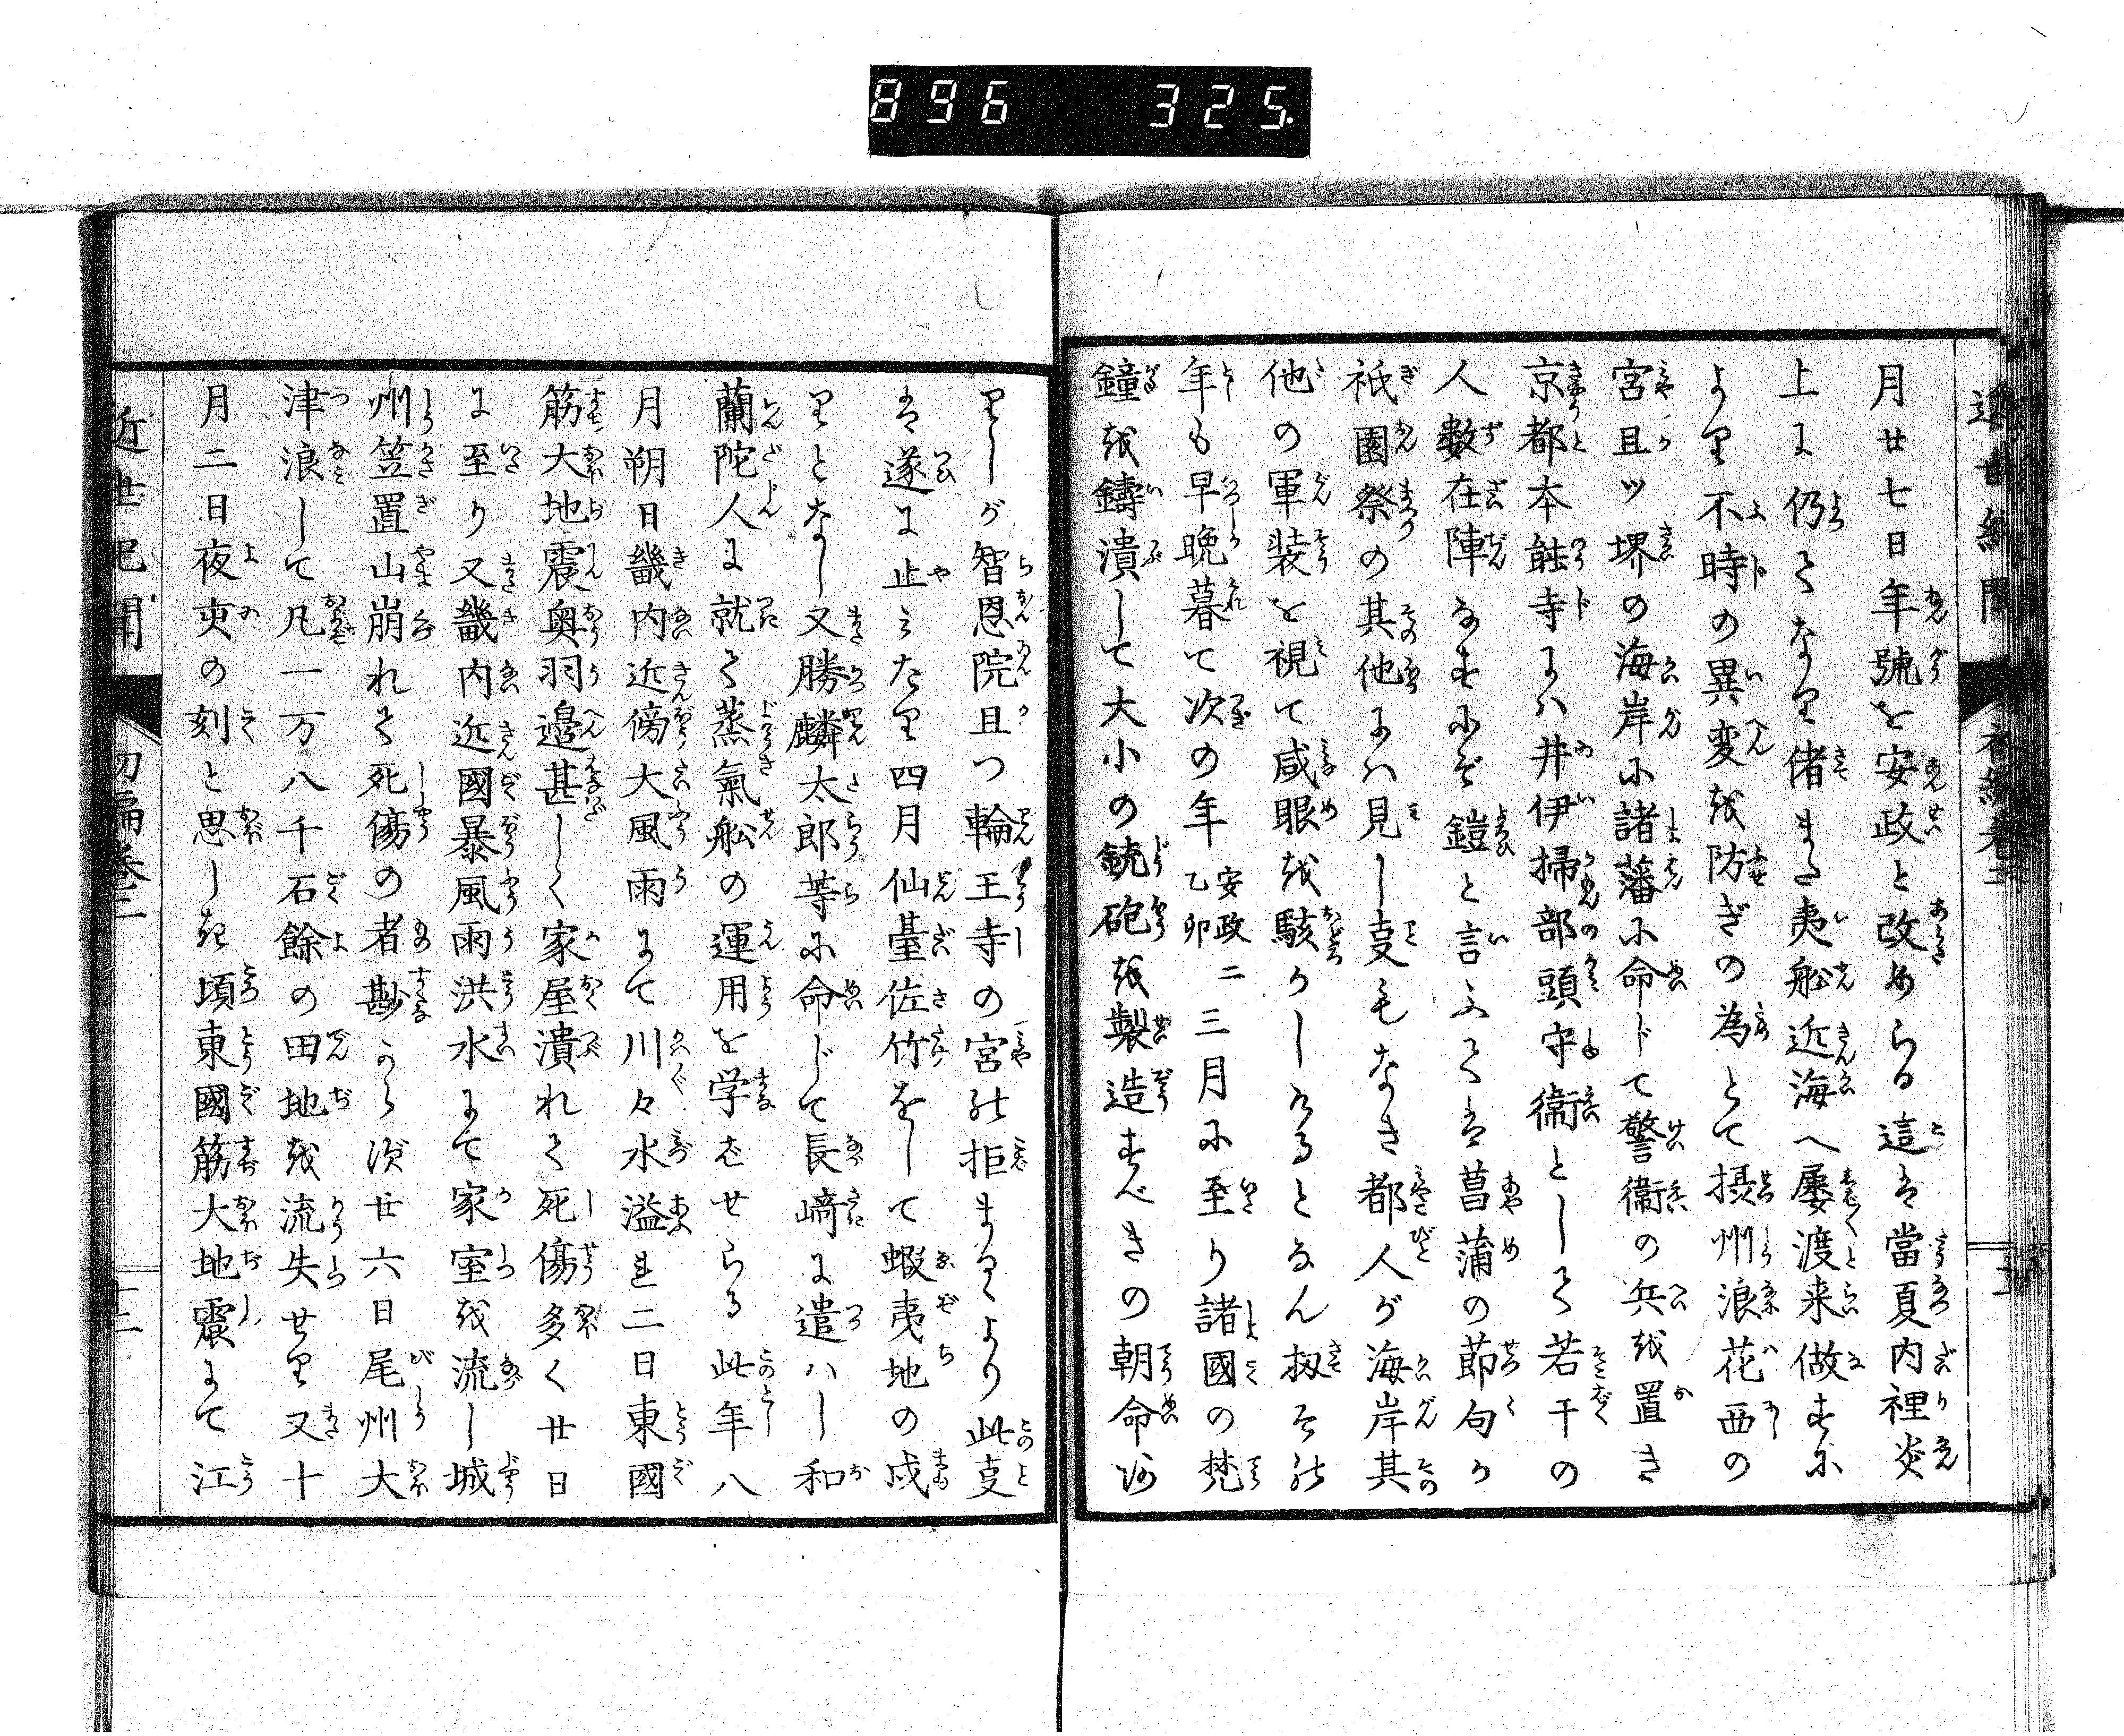 896 325.
月廿七日年號を安政と改めらる這は當夏内裡炎
上に仍てなり偖また夷舩近海へ屡渡来做すに
より不時の異変を防ぎの為とて摂州浪花西の
宮且ツ堺の海岸に諸藩に命じて警衞の兵を置き
京都本能寺にハ井伊掃部頭守衞として若干の
人数在陣なすにぞ鎧と言ふては菖蒲の節句か
祇園祭の其他にハ見し叓もなき都人が海岸其
他の軍装を視て咸眼を駭かしけるとなん扨その
年も早晩暮て次の年安政二乙卯三月に至り諸國の梵
鐘を鑄潰して大小の銃砲を製造すべきの朝命あ
りしが智恩院且つ輪王寺の宮の拒まるゝより此叓
は遂に止みたり四月仙臺佐竹をして蝦夷地の戍
りとなし又勝麟太郎等に命じて長﨑に遣ハし和
蘭陀人に就て蒸氣舩の運用を学ばせらる此年八
月朔日畿内近傍大風雨にて川々水溢れ二日東國
筋大地震奥羽邉甚しく家屋潰れて死傷多く廿日
に至り又畿内近國暴風雨洪水にて家室を流し城
州笠置山崩れて死傷の者尠からず廿六日尾州大
津浪して凡一万八千石餘の田地を流失せり又十
月二日夜亥の刻と思しき頃東國筋大地震にて江
近世紀聞 初編巻二 十二